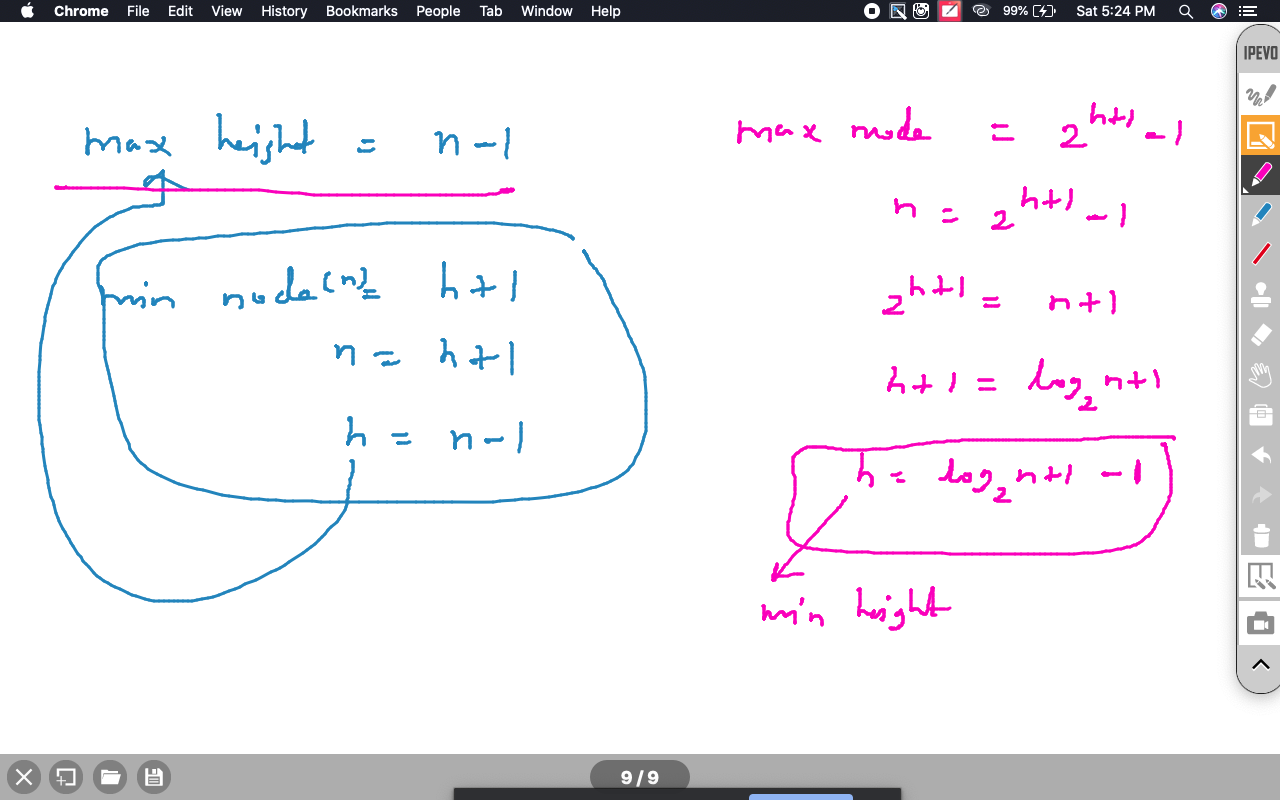 Chrome File Edit View History Bookmarks People Tab Window Help 99% Sat 5:24 PM
IPEVO
max height = n-1
min node(n) = h+1
n = h+1
h = n-1
max node = 2^{h+1} - 1
n = 2^{h+1} - 1
2^{h+1} = n+1
h+1 = log₂ n+1
h = log₂ n+1 - 1
min height
9 / 9